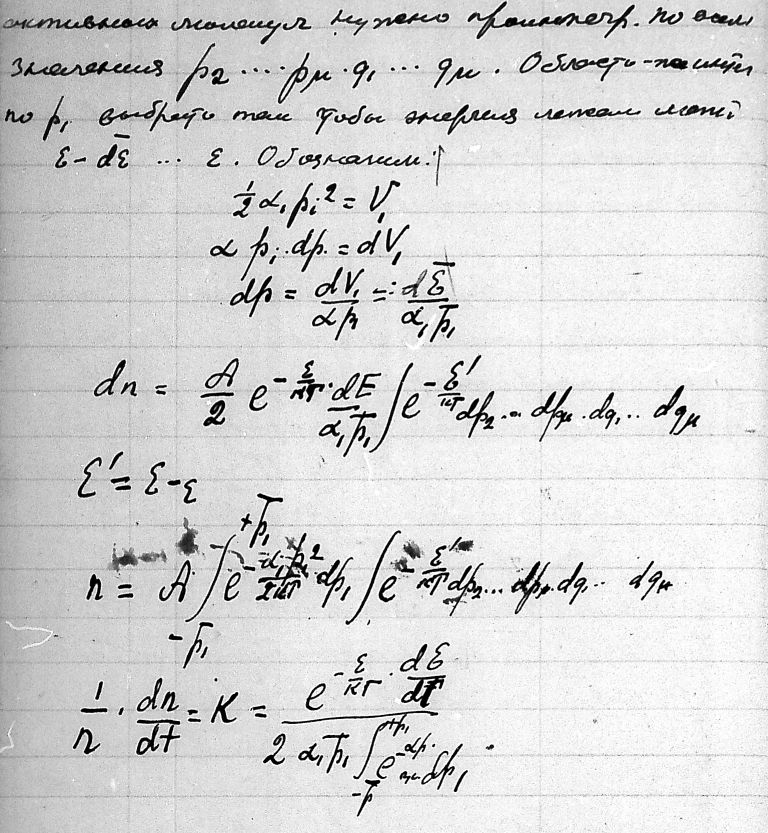 активных молекул нужно проинтегр. по всем
значениям p₂ .... pμ · q₁ ... qμ. Область
по p₁ выбрать так чтобы энергия лежала между
ε - dε̄ ... ε. Обозначим:
½ α₁ p₁² = V₁
α p₁ · dp = dV₁
dp = dV₁/(α p₁) = dε̄/(α₁ p̄₁)
dn = A/2 e^(-ε/кТ) · dE/(α₁ p̄₁) ∫ e^(-ε'/кТ) dp₂ ... dpμ · dq₁ .. dqμ
ε' = ε - ε
n = A ∫_{-p̄₁}^{+p̄₁} e^(-α₁p₁²/2кТ) dp₁ ∫ e^(-ε'/кТ) dp₂ ... dpμ · dq₁ .. dqμ
1/n · dn/dt = K = (e^(-ε/кТ) · dε/dt) / (2 α₁ p̄₁ ∫_{-p̄}^{+p₁} e dp₁)